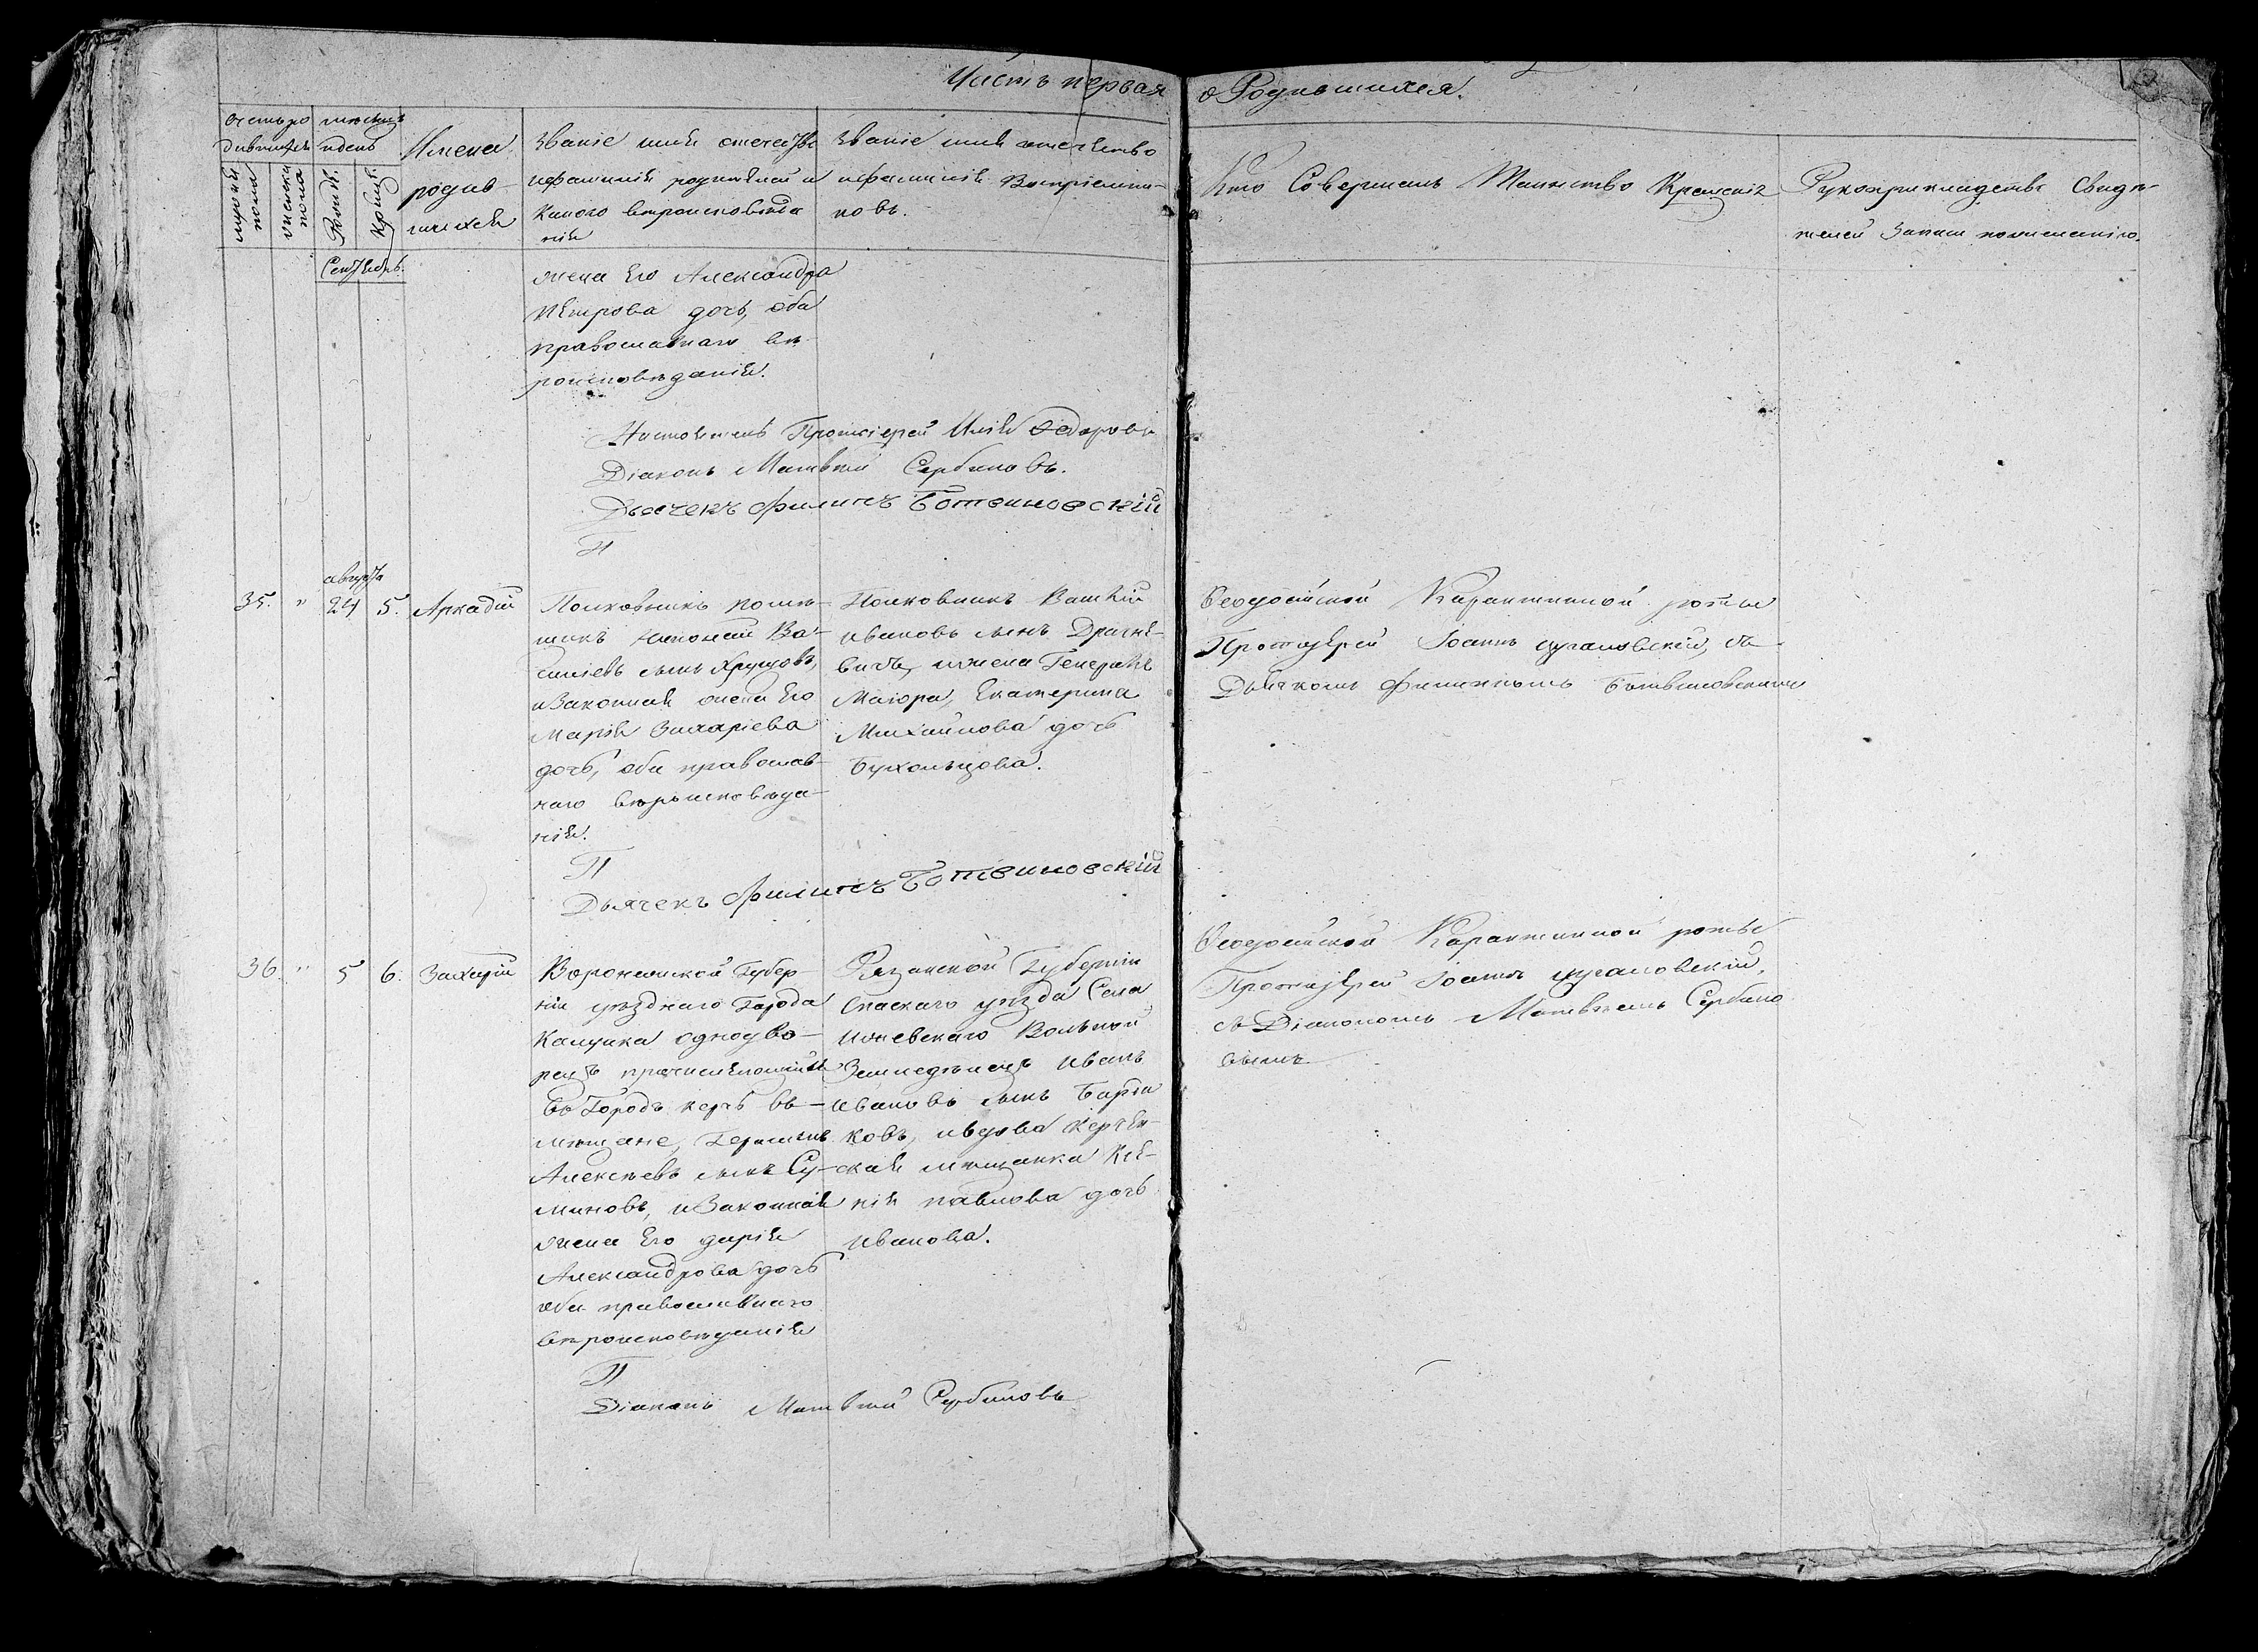 Часть первая о Родившихся.
Счетъ ро
дившихся
мужеска
пола
женска
пола
месяцъ
и день
Рожд.
Крещ.
Имена
родив-
шихся
Званіе имя отечество
и фамилія родителей и
какого вероисповеда
нія
Званіе имя отечество
и фамилія Воспріемни-
ковъ.
Кто Совершалъ Таинство Крещенія
Рукоприкладство Свиде-
телей Записи по желанію.
Сентябрь.
жена Его Александра
Петрова дочь, оба
православнаго ве-
роисповѣданія.
Настоятель Протоіерей Илія Федоровъ
Діаконъ Матвѣй Сербиновъ.
Дьячекъ Филипъ Ботвиновскій
П
35. " августа 24 5. Аркадій
Полковникъ помѣ-
щикъ Ва-
силіевъ сынъ Хрущовъ,
и Законная жена Его
Марія Захаріева
дочь, оба православ-
наго вѣроисповѣда-
нія.
Полковникъ Василій
Ивановъ сынъ Драгне-
вичь, и жена Генералъ
Маіора, Екатерина
Михайлова дочь
Бухольцова.
Феодосійской Карантинной роты
Протоіерей Іоаннъ Цугановскій, съ
Дьячкомъ Филиппомъ Ботвиновскимъ
П
Дьячекъ Филипъ Ботвиновскій
36. " 5 6. Захарій
Воронежской Губер-
ніи уѣзднаго Города
однодво-
рецъ причисляющійся
въ Городъ Керчь въ
мещане, Герасимъ
Алексѣевъ сынъ Су-
миновъ, и Законная
жена Его Дарія
Александрова дочь
оба православнаго
вѣроисповѣданія
Рязанской Губерніи
Спаскаго уѣзда Села
Ижевскаго Вольной
Земледѣлецъ Иванъ
Ивановъ сынъ Барда
ковъ, и вдова Керчен-
ская мѣщанка Ксе-
нія Павлова дочь
Иванова.
Феодосійской Карантинной роты
Протоіерей Іоаннъ Цугановскій,
съ Діакономъ Матвѣемъ Сербино
вымъ
П
Діаконъ Матвѣй Сербиновъ